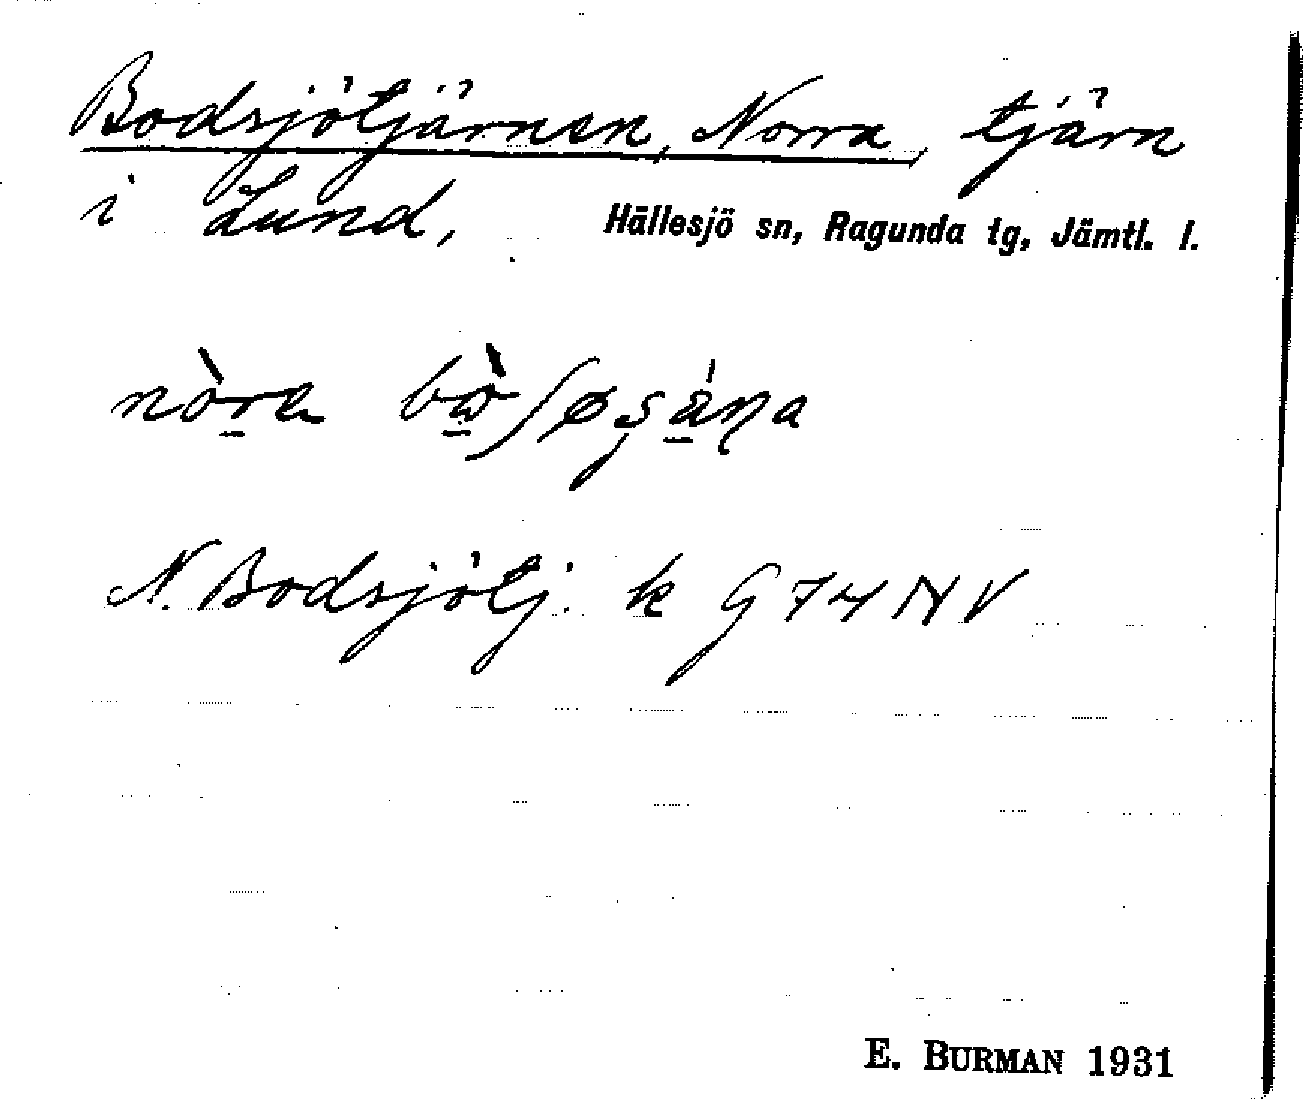 Bodsjötjärnen, Norra, tjärn
i Lund, Hällesjö sn, Ragunda tg, Jämtl. l.
nòra
N. Bodsjötj. k G 74 NV
E. BURMAN 1931